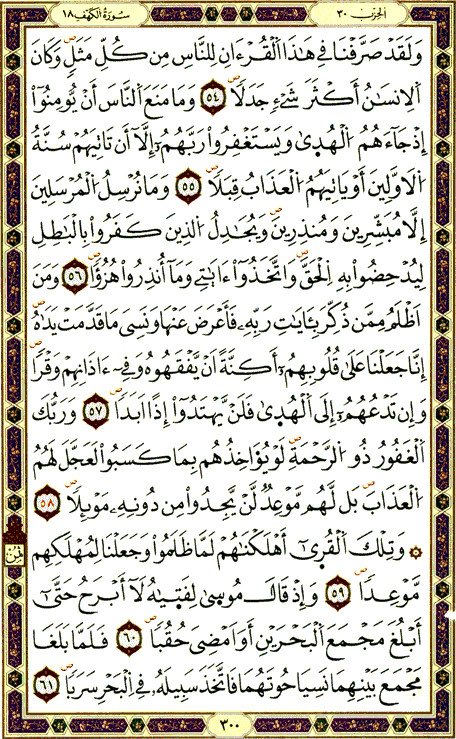 الحزب ٣٠
سُورَةُ الْكَهْفِ ١٨
وَلَقَدْ صَرَّفْنَا فِي هَٰذَا اَ۬لْقُرْءَانِ لِلنَّاسِ مِن كُلِّ مَثَلٍۖ وَكَانَ
اَ۬لِانسَٰنُ أَكْثَرَ شَےْءٖ جَدَلاٗۖ ٥٤ وَمَا مَنَعَ اَ۬لنَّاسَ أَنْ يُّومِنُوٓاْ
إِذْ جَآءَهُمُ اُ۬لْهُد۪ىٰ وَيَسْتَغْفِرُواْ رَبَّهُمُۥٓ إِلَّآ أَن تَاتِيَهُمْ سُنَّةُ
اُ۬لَاوَّلِينَ أَوْ يَاتِيَهُمُ اُ۬لْعَذَابُ قِبَلاٗۖ ٥٥ وَمَا نُرْسِلُ اُ۬لْمُرْسَلِينَ
إِلَّا مُبَشِّرِينَ وَمُنذِرِينَۖ وَيُجَٰدِلُ اُ۬لذِينَ كَفَرُواْ بِالْبَٰطِلِ
لِيُدْحِضُواْ بِهِ اِ۬لْحَقَّۖ وَاتَّخَذُوٓاْ ءَايَٰتِے وَمَآ أُنذِرُواْ هُزُؤاٗۖ ٥٦ وَمَنَ
اَظْلَمُ مِمَّن ذُكِّرَ بِـَٔايَٰتِ رَبِّهِۦ فَأَعْرَضَ عَنْهَا وَنَسِيَ مَا قَدَّمَتْ يَدَٰهُۖ
إِنَّا جَعَلْنَا عَلَىٰ قُلُوبِهِمُۥٓ أَكِنَّةً اَنْ يَّفْقَهُوهُ وَفِےٓ ءَاذَانِهِمْ وَقْراٗۖ
وَإِن تَدْعُهُمُۥٓ إِلَى اَ۬لْهُد۪ىٰ فَلَنْ يَّهْتَدُوٓاْ إِذاً اَبَداٗۖ ٥٧ وَرَبُّكَ
اَ۬لْغَفُورُ ذُو اُ۬لرَّحْمَةِۖ لَوْ يُؤَاخِذُهُم بِمَا كَسَبُواْ لَعَجَّلَ لَهُمُ
اُ۬لْعَذَابَۖ بَل لَّهُم مَّوْعِدٞ لَّنْ يَّجِدُواْ مِن دُونِهِۦ مَوْئِلاٗۖ ٥٨
۞ وَتِلْكَ اَ۬لْقُر۪ىٰٓ أَهْلَكْنَٰهُمْ لَمَّا ظَلَمُواْ وَجَعَلْنَا لِمُهْلَكِهِم
مَّوْعِداٗۖ ٥٩ وَإِذْ قَالَ مُوس۪ىٰ لِفَت۪يٰهُ لَآ أَبْرَحُ حَتَّىٰٓ
أَبْلُغَ مَجْمَعَ اَ۬لْبَحْرَيْنِ أَوَ اَمْضِيَ حُقُباٗۖ ٦٠ فَلَمَّا بَلَغَا
مَجْمَعَ بَيْنِهِمَا نَسِيَا حُوتَهُمَا فَاتَّخَذَ سَبِيلَهُۥ فِي اِ۬لْبَحْرِ سَرَباٗۖ ٦١
ثمن
٣٠٠